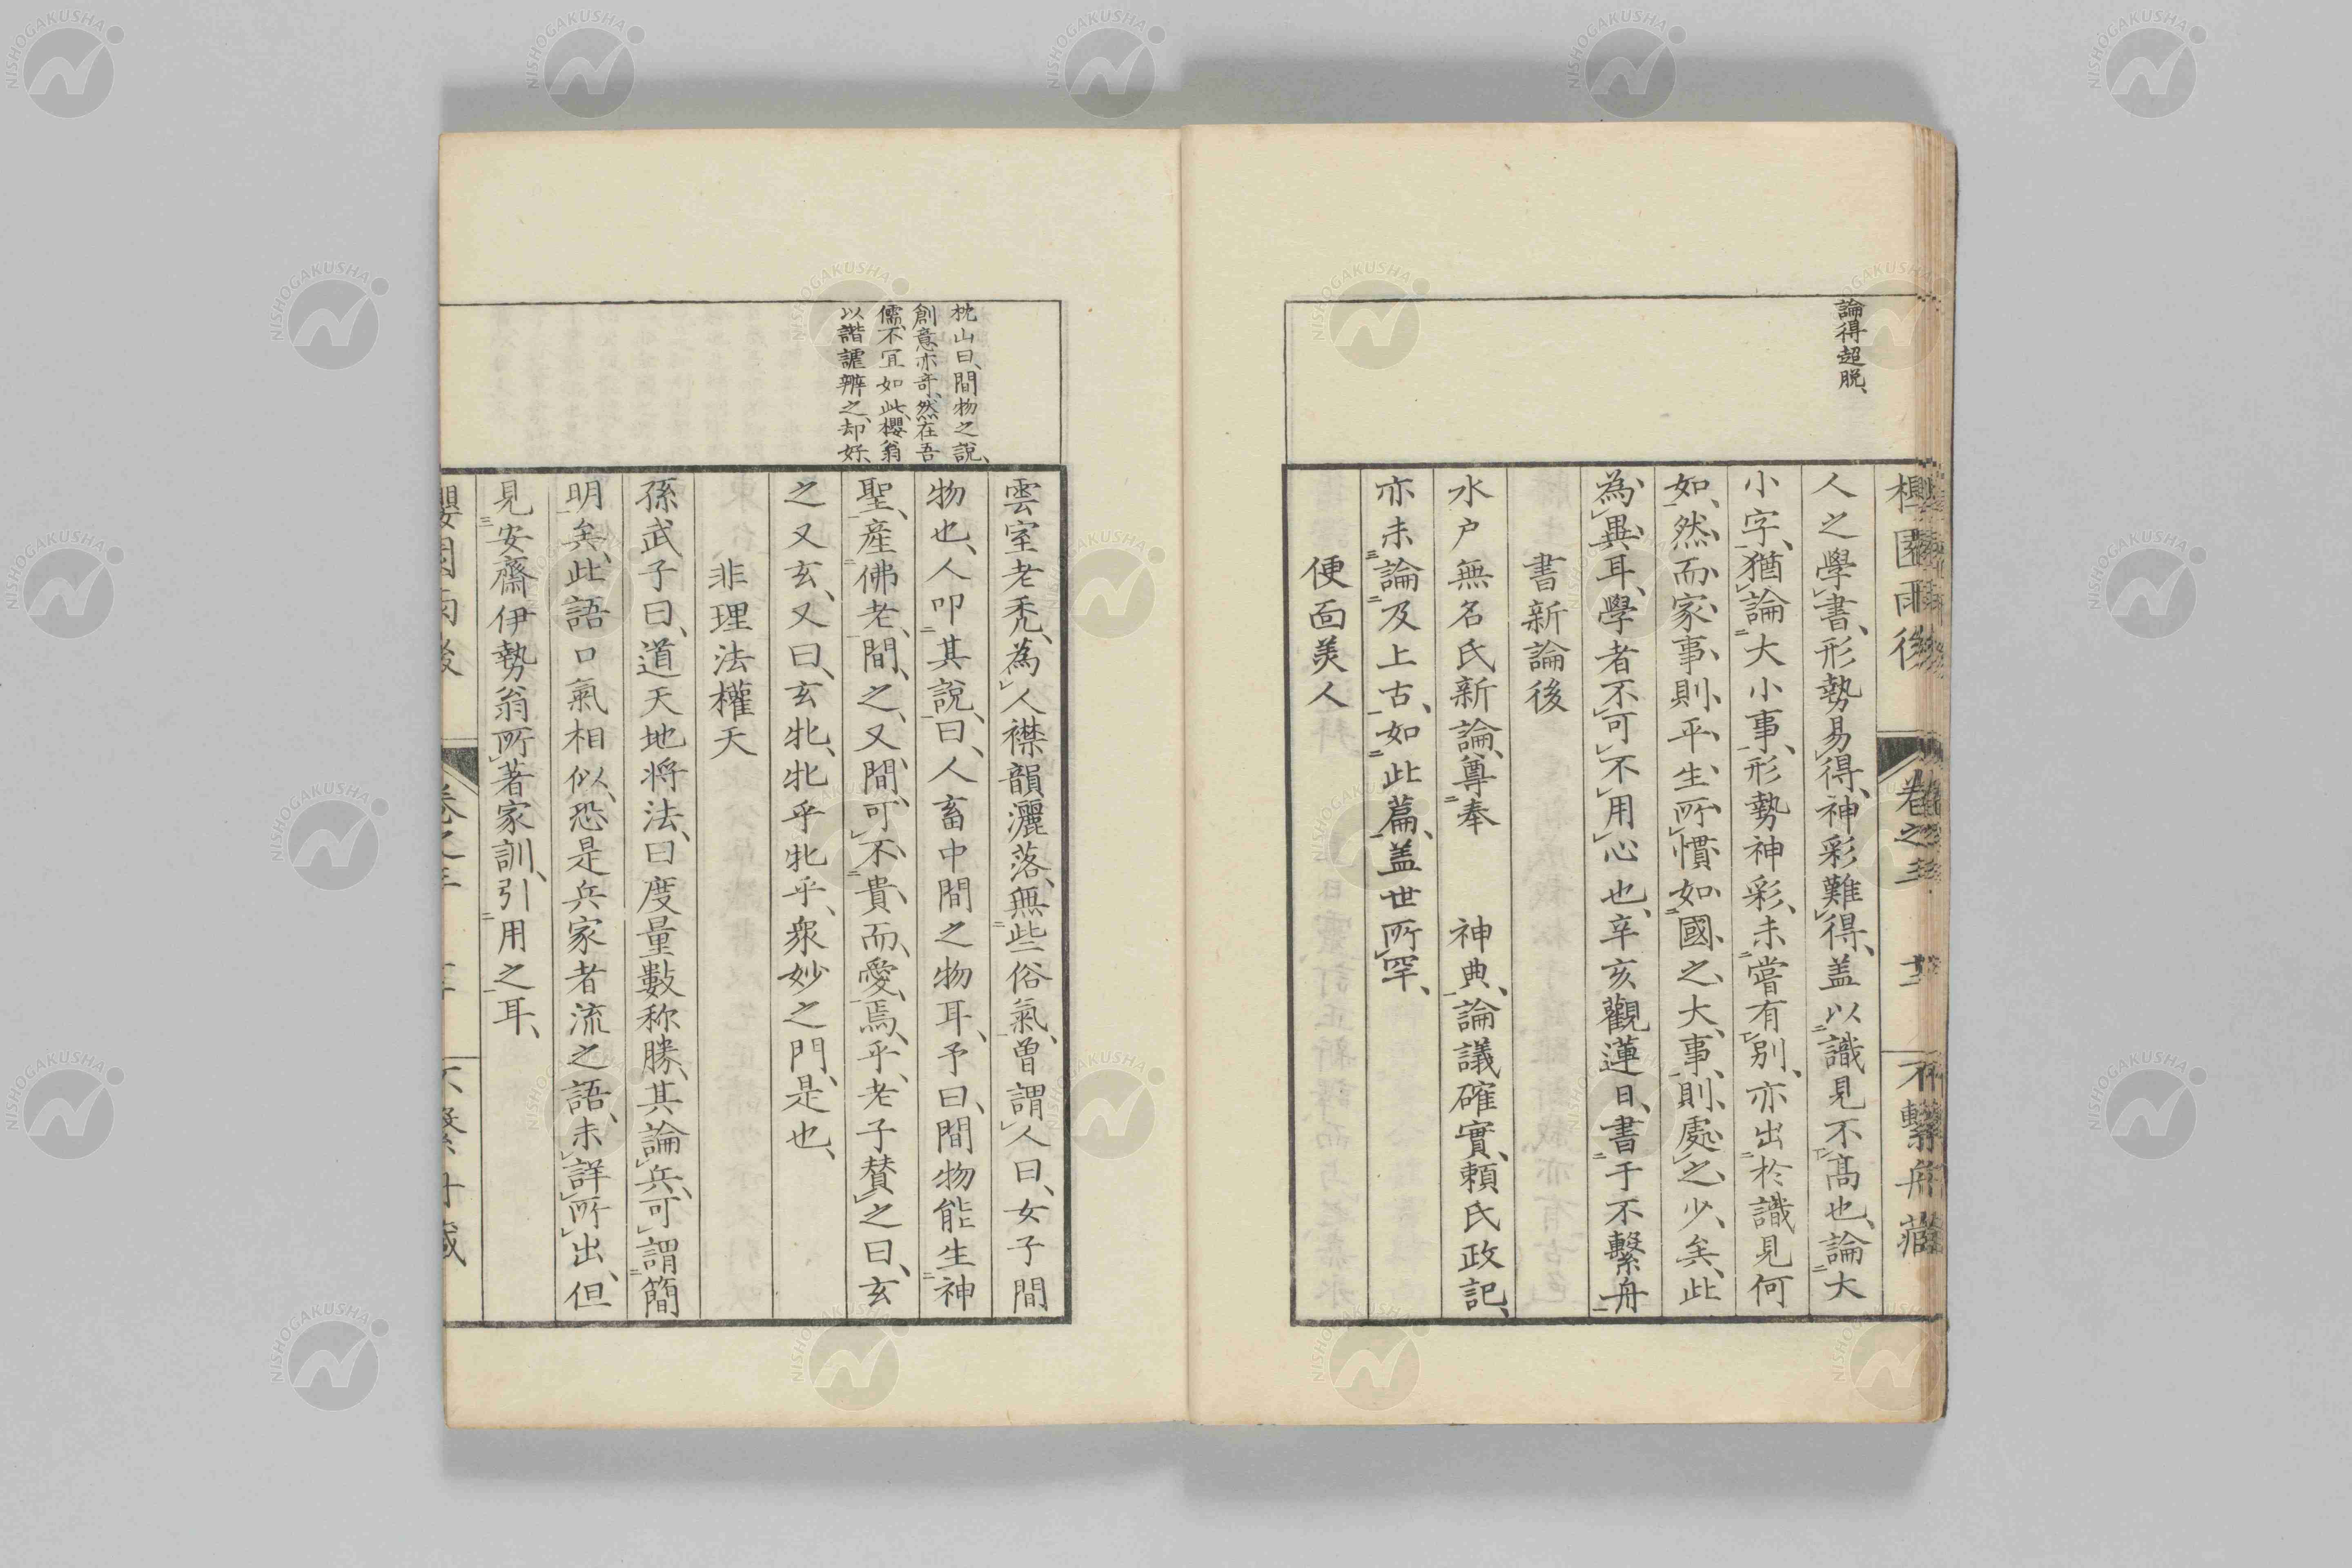 論得超脱、
櫻園雨後 卷之三 十二 不繫舟藏
人之學書、形勢易得、神彩難得、盖以識見不髙也、論大
小字、猶論大小事、形勢神彩、未嘗有別、亦出於識見何
如、然而家事則平生所慣、如國之大事、則處之少矣、此
為異耳、學者不可不用心也、辛亥觀蓮日、書于不繫舟
書新論後
水戸無名氏新論、尊奉　神典、論議確實、頼氏政記、
亦未論及上古、如此篇、盖世所罕、
便面美人
枕山曰、間物之說、
創意亦奇、然在吾
儒、不宜如此、櫻翁
以諧謔辨之、却好、
雲室老禿、為人襟韻灑落、無些俗氣、曽謂人曰、女子間
物也、人叩其說、曰、人畜中間之物耳、予曰、間物能生神
聖、產佛老、間之又間、可不貴而愛焉乎、老子賛之曰、玄
之又玄、又曰、玄牝、牝乎牝乎、衆妙之門、是也、
非理法權天
孫武子曰、道天地将法、曰度量數称勝、其論兵、可謂簡
明矣、此語口氣相似、恐是兵家者流之語、未詳所出、但
見安齋伊勢翁所著家訓、引用之耳、
櫻園雨後 卷之三 不繫舟藏